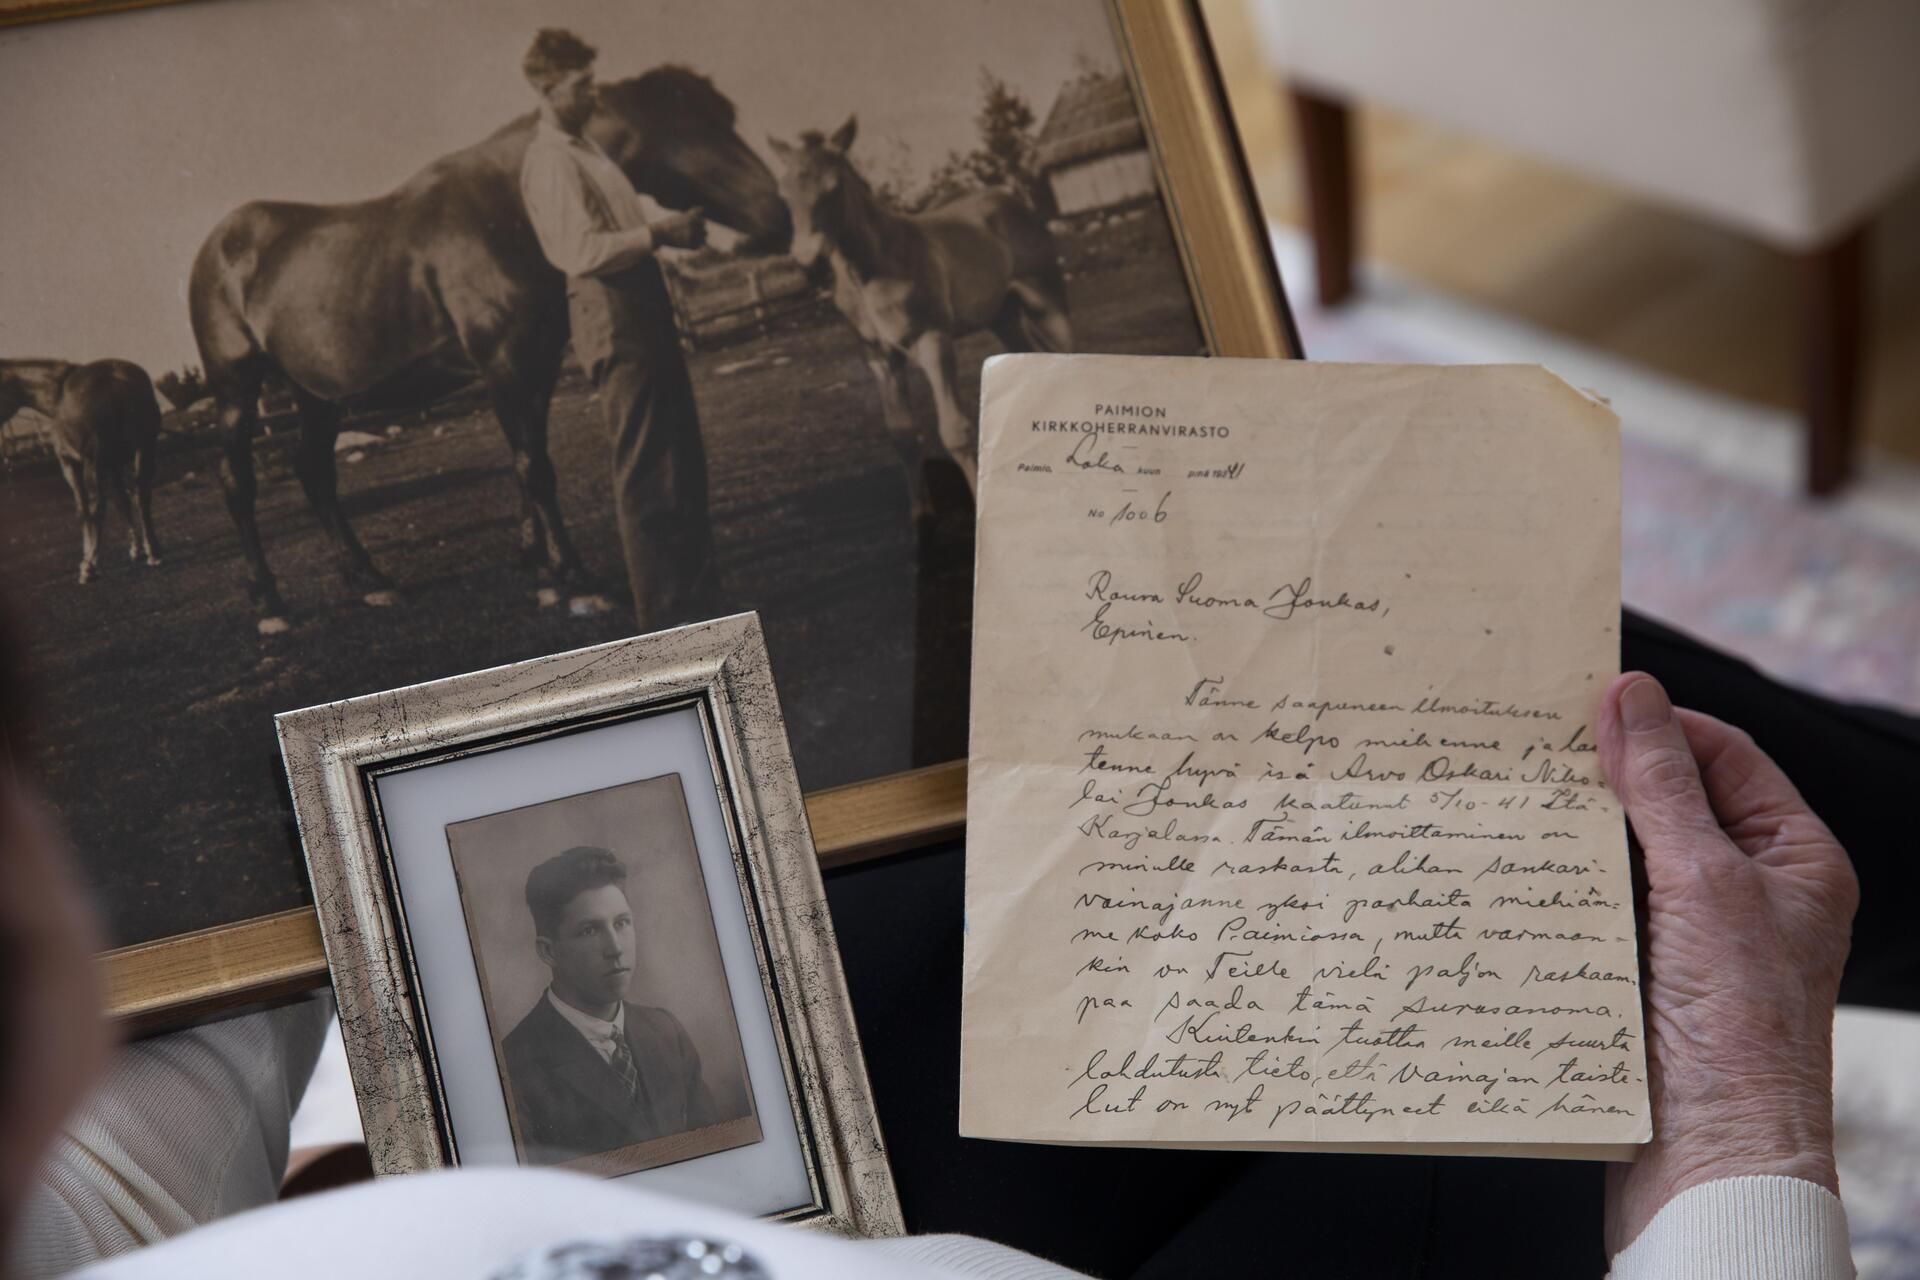 PAIMION
KIRKKOHERRANVIRASTO
Paimio, Loka kuun p:nä 1941
No 1006
Rouva Suoma Joukas,
Epinen.
Tänne saapuneen ilmoituksen
mukaan on kelpo miehenne ja las
tenne hyvä isä Arvo Oskari Niko-
lai Joukas kaatunut 5/10-41 Itä-
Karjalassa. Tämän ilmoittaminen on
minulle raskasta, olihan sankari-
vainajanne yksi parhaita miehiäm-
me koko Paimiossa, mutta varmaan-
kin on Teille vielä paljon raskaam-
paa saada tämä surusanoma.
Kuitenkin tuottaa meille suurta
lohdutusta tieto, että vainajan taiste-
lut on nyt päättyneet eikä hänen